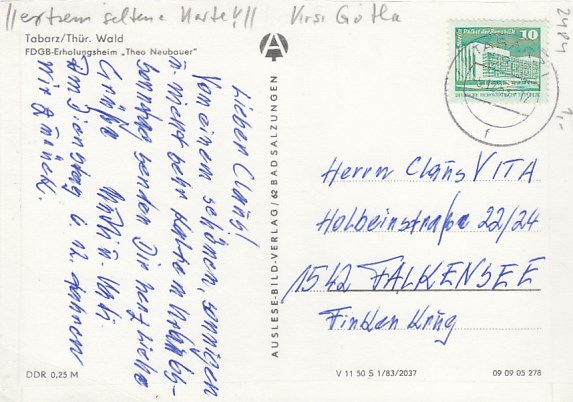 !!extrem seltene Karte!!! Krsr Gotha
Tabarz/Thür. Wald
FDGB-Erholungsheim „Theo Neubauer"
Palast der Republik 10
TABARZ
2484
1,-
Lieber Claus!
Von einem schönen, sonnigen
u. nicht sehr kalten Urlaubs-
sonntag senden Dir herzliche
Grüße
Am Dienstag 6.12. fahren
wir zurück.
AUSLESE-BILD-VERLAG / 62 BAD SALZUNGEN
Herrn Claus VITA
Holbeinstraße 22/24
1542 FALKENSEE
Finkenkrug
DDR 0,25 M
V 11 50 S 1/83/2037
09 09 05 278